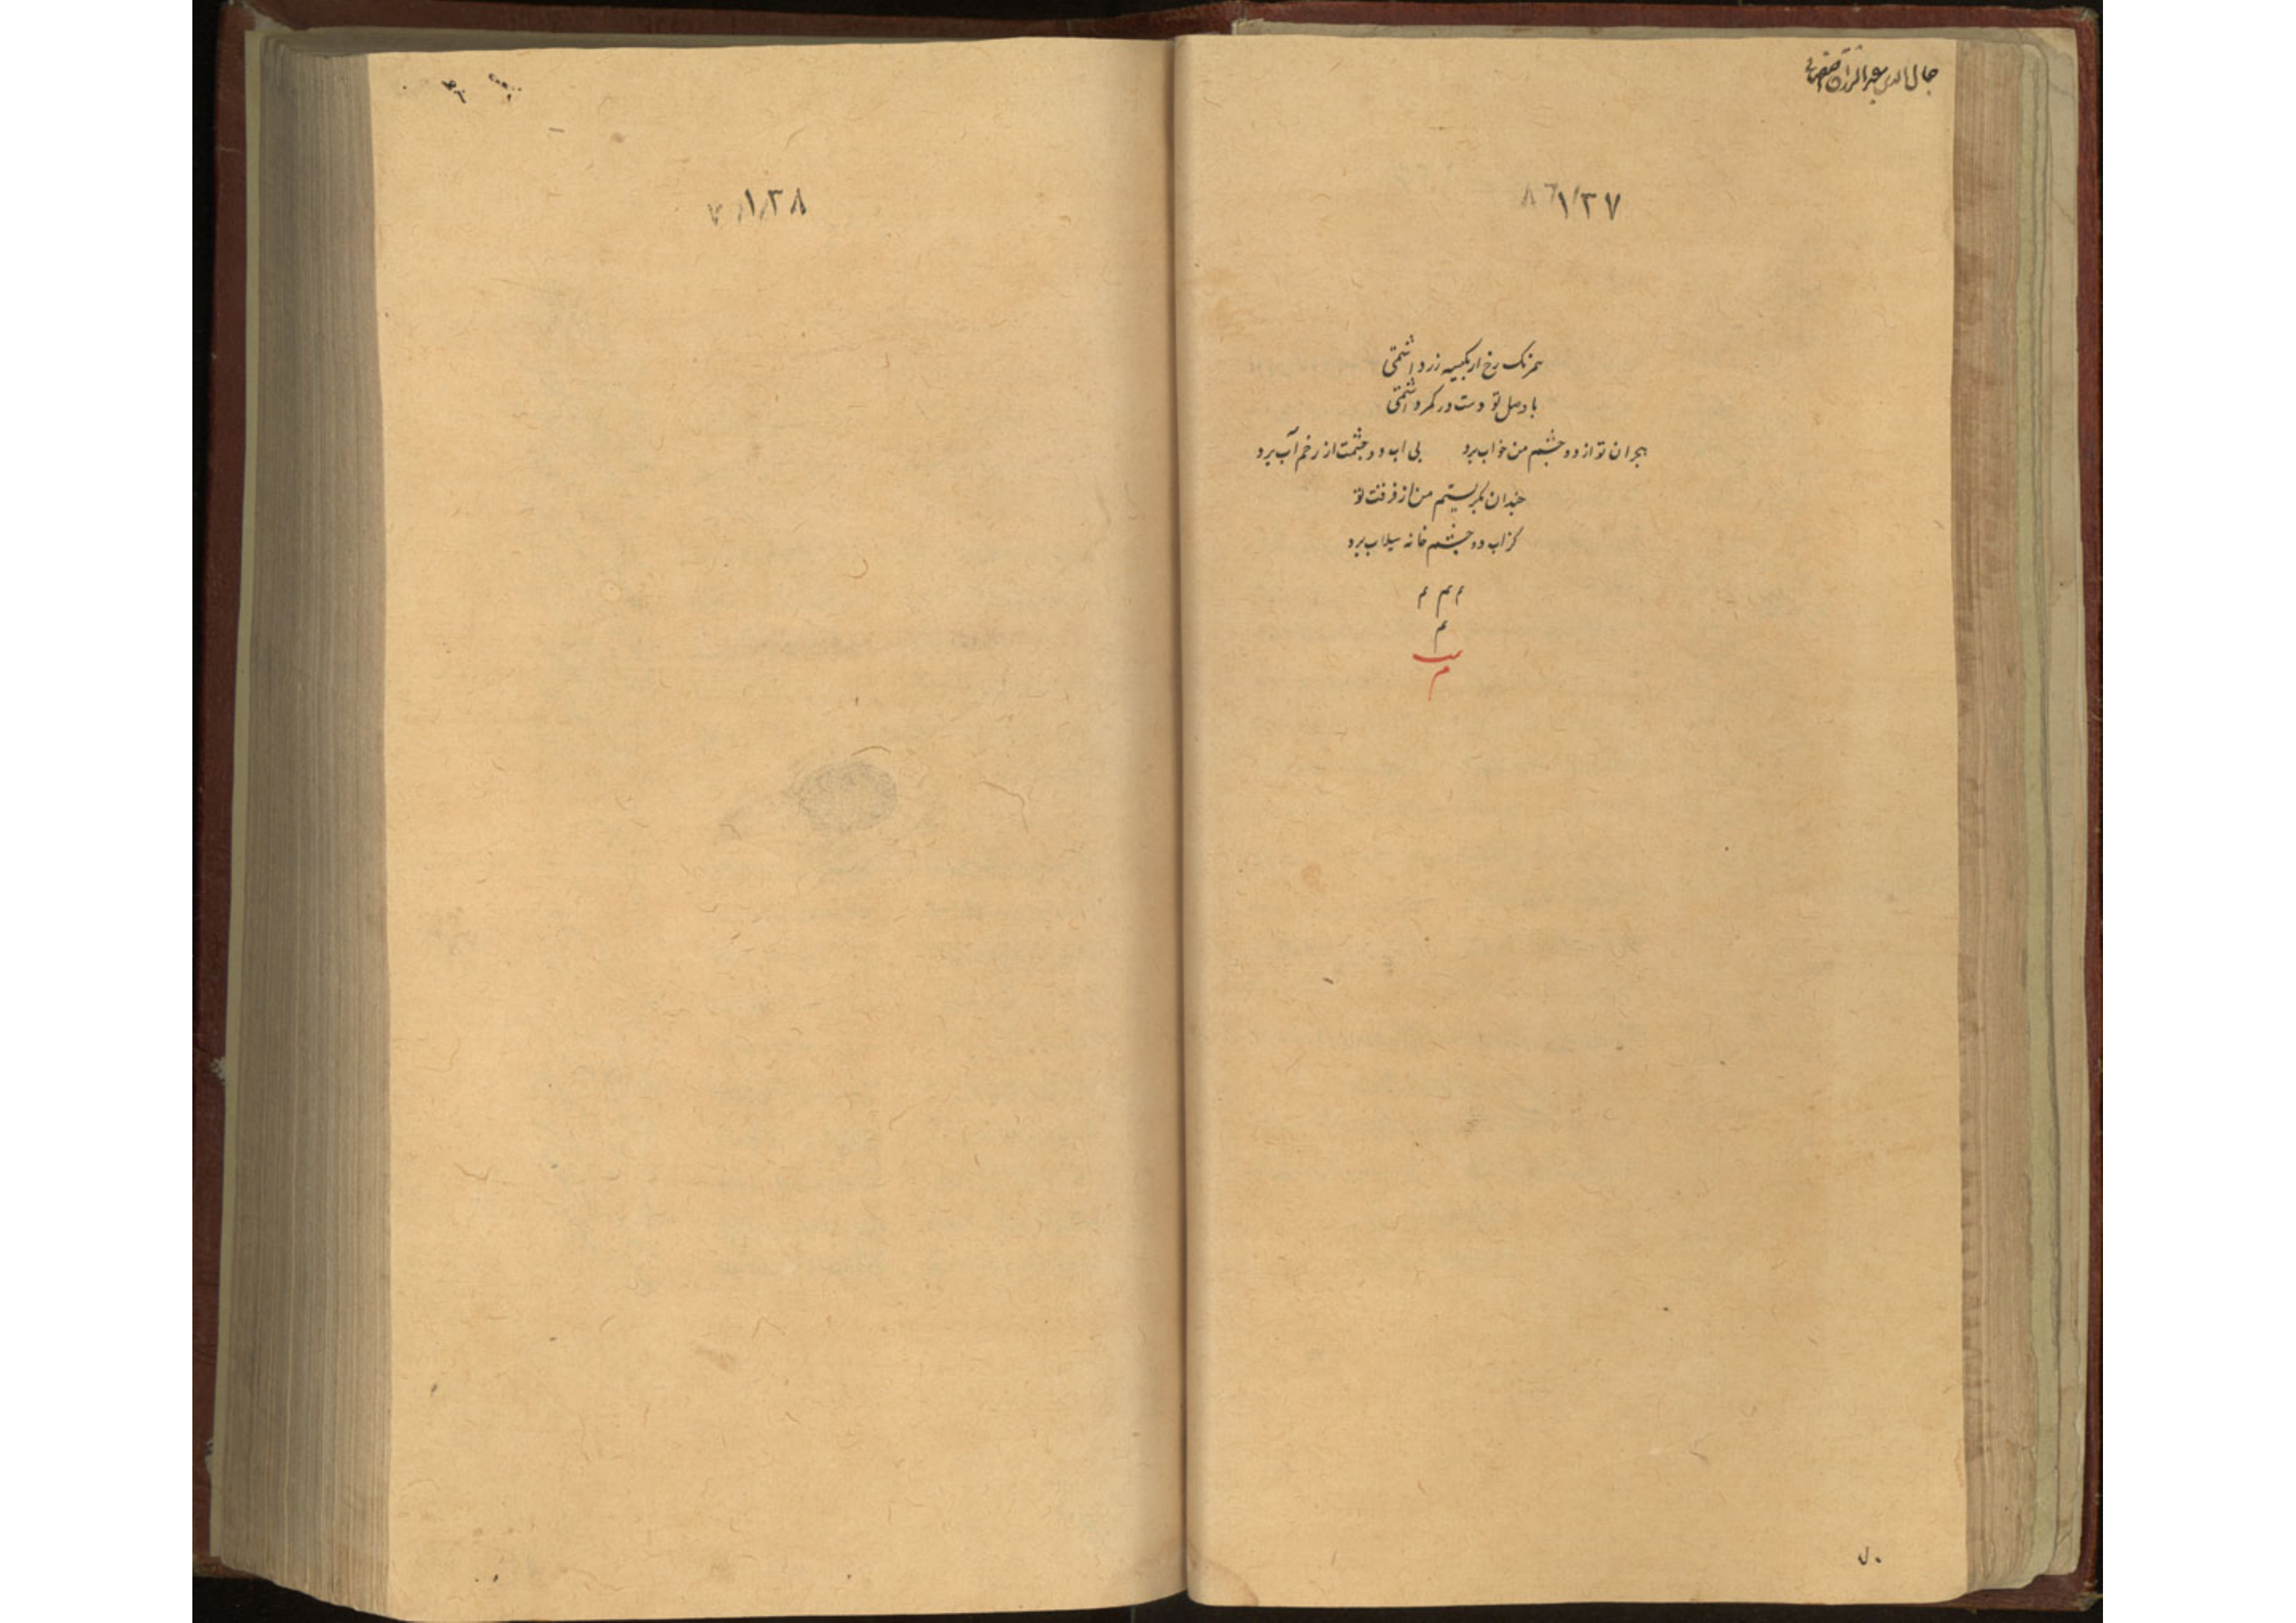 جمال الدین عبدالرزاق اصفهانی
۱۳۷
همرنک رخ ار بکیسه زر داشتمی
با وصل تو دست در کمر داشتمی
هجران تو از دو چشم من خواب ببرد بی اب دو چشمت از رخم آب ببرد
چندان بکریستم من از فرقت تو
کز اب دو چشم خانه سیلاب ببرد
م م م
م
م
۱۳۸